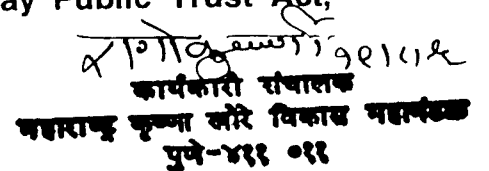 ay Public Trust Act,
कार्यकारी संचालक
महाराष्ट्र कृष्णा खोरे विकास महामंडळ
पुणे-४११ ०११